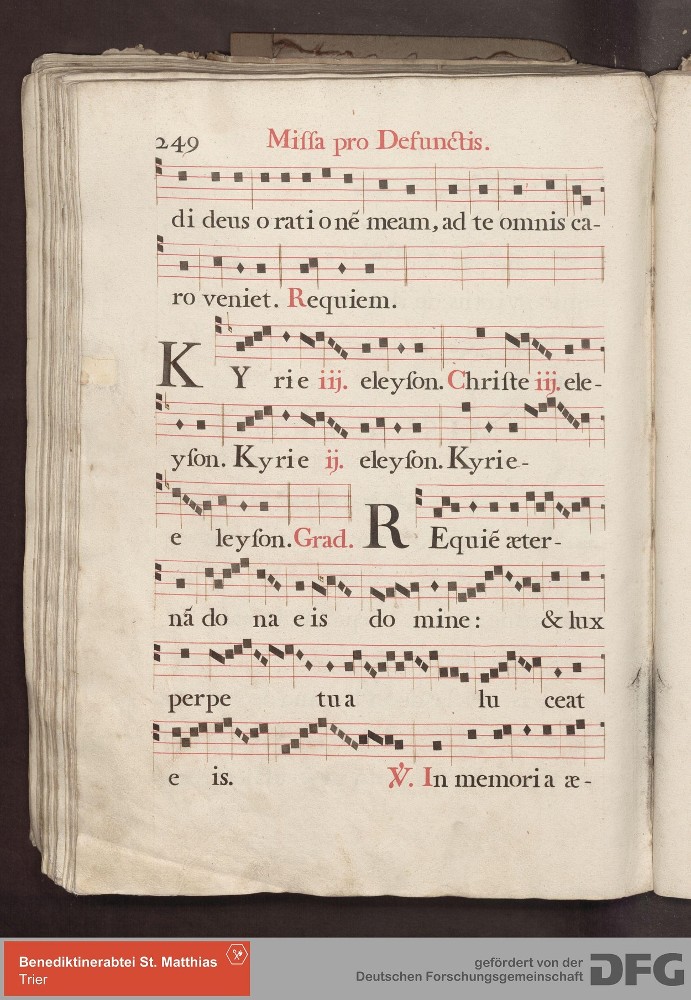 249 Miſſa pro Defunctis.
di deus o rati o nẽ meam, ad te omnis ca-
ro veniet. Requiem.
K Y rie iij. eleyſon. Chriſte iij. ele-
yſon. Kyrie ij. eleyſon. Kyrie-
e leyſon. Grad. R Equiẽ æter-
nã do na e is do mine: & lux
perpe tu a lu ceat
e is. ℣. In memori a æ-
Benediktinerabtei St. Matthias
Trier
gefördert von der
Deutschen Forschungsgemeinschaft DFG